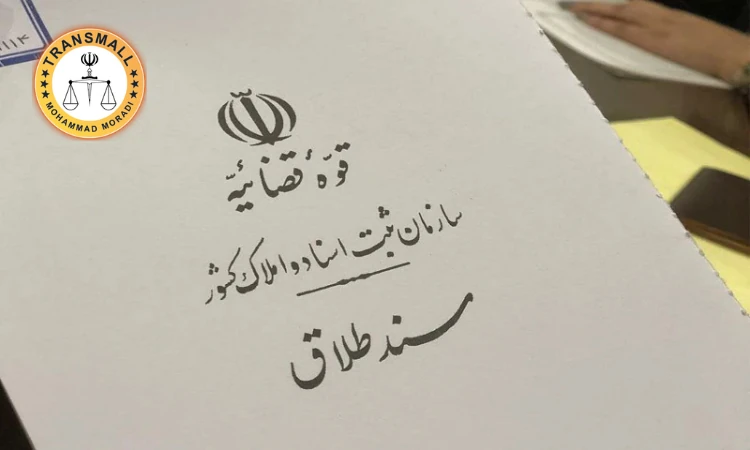 TRANSMALL
MOHAMMAD MORADI
قوّهٔ قضائیّه
سازمان ثبت اسناد و املاک کشور
سند طلاق